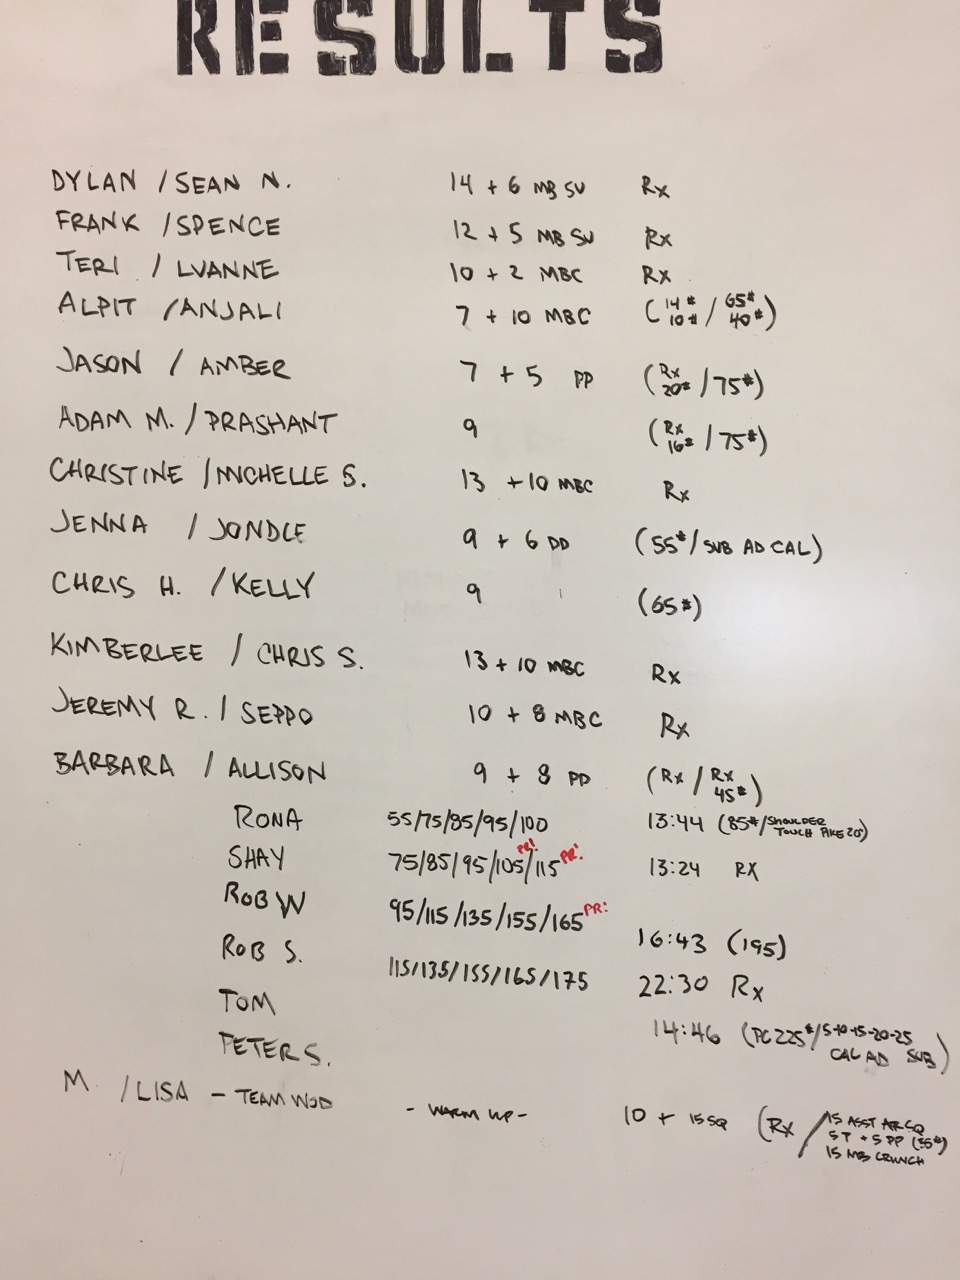 RESULTS
DYLAN / SEAN N. 14 + 6 MB SU Rx
FRANK / SPENCE 12 + 5 MB SU Rx
TERI / LVANNE 10 + 2 MBC Rx
ALPIT / ANJALI 7 + 10 MBC (14# 10# / 65# 40#)
JASON / AMBER 7 + 5 PP (Rx 20# / 75#)
ADAM M. / PRASHANT 9 (Rx 16# / 75#)
CHRISTINE / MICHELLE S. 13 + 10 MBC Rx
JENNA / JONDLE 9 + 6 PP (55# / SUB AD CAL)
CHRIS H. / KELLY 9 (65#)
KIMBERLEE / CHRIS S. 13 + 10 MBC Rx
JEREMY R. / SEPPO 10 + 8 MBC Rx
BARBARA / ALLISON 9 + 8 PP (Rx / Rx 45#)
RONA 55/75/85/95/100 13:44 (85# / SHOULDER TOUCH PIKE 20")
SHAY 75/85/95/105 PR! /115 PR! 13:24 RX
ROB W 95/115/135/155/165 PR! 16:43 (195)
ROB S. 115/135/155/165/175 22:30 Rx
TOM 14:46 (PC 225# / 5-10-15-20-25 CAL AD SUB)
PETER S.
M. / LISA - TEAM WOD - WARM UP - 10 + 15 SQ (Rx / 15 ASST AIR SQ
5 T + 5 PP (35#)
15 MB CRUNCH